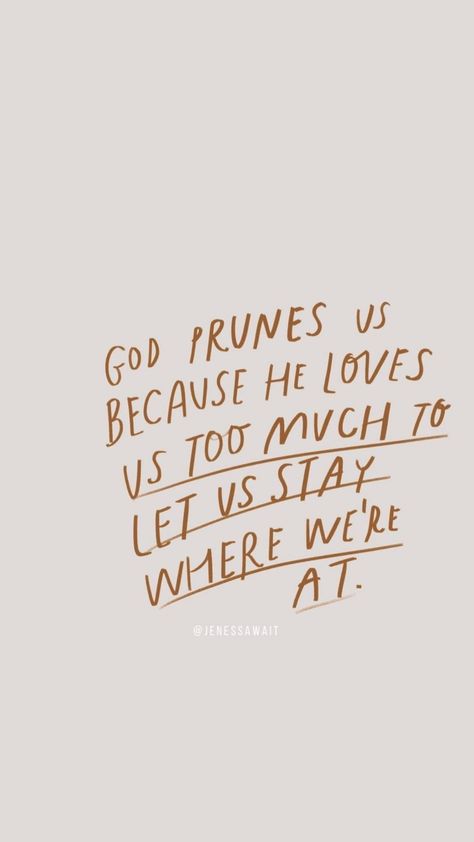 GOD PRUNES US
BECAUSE HE LOVES
US TOO MUCH TO
LET US STAY
WHERE WE'RE
AT.
@JENESSAWAIT